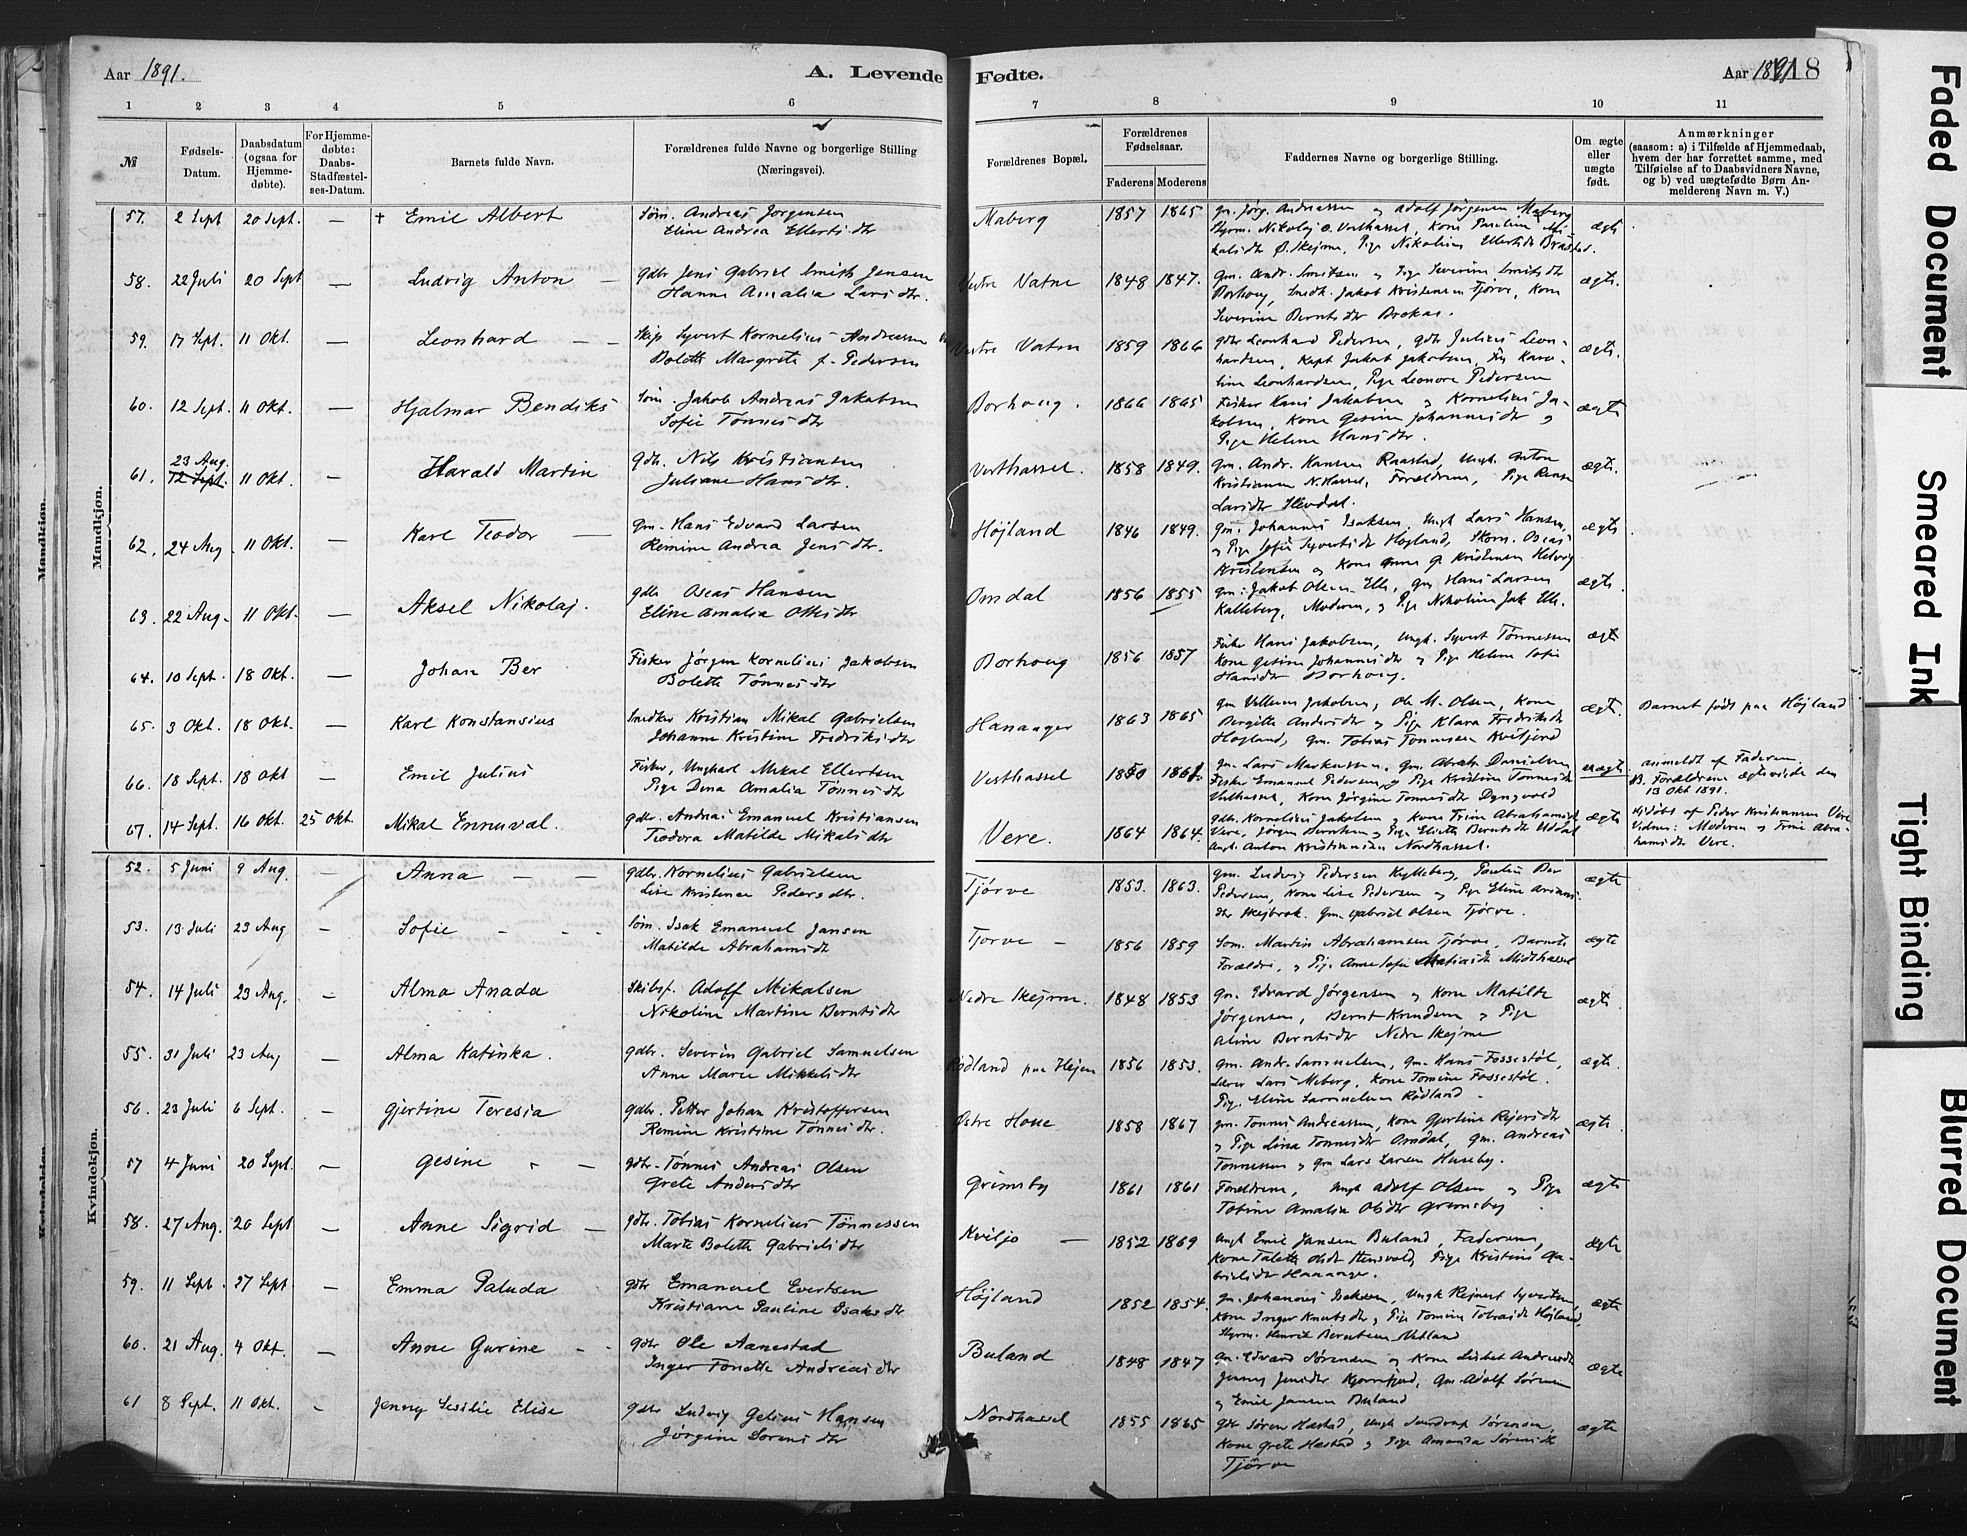 Aar 1891.
A. Levende Fødte.
Aar 1891 18
1 2 3 4 5 6 7 8 9 10 11
№
Fødsels-Datum.
Daabsdatum (ogsaa for Hjemme-døbte).
For Hjemme-døbte: Daabs-Stadfæstel-ses-Datum.
Barnets fulde Navn.
Forældrenes fulde Navne og borgerlige Stilling (Næringsvei).
Forældrenes Bopæl.
Forældrenes Fødselsaar.
Faderens Moderens
Faddernes Navne og borgerlige Stilling.
Om ægte eller uægte født.
Anmærkninger
(saasom: a) i Tilfælde af Hjemmedaab, hvem der har forrettet samme, med Tilføielse af to Daabsvidners Navne, og b) ved uægtefødte Børn An-melderens Navn m. V.)
Mandkjøn.
57. 2 Sept 20 Sept. — + Emil Albert
Søm. Andreas Jørgensen
Eline Andrea Ellertsdtr
Maberg 1857 1865
gm. Jørg. Andreassen og Adolf Jørgensen Maberg
58. 22 Juli 20 Sept — Ludvig Anton —
gdbr Jens Gabriel Smith Jensen
Hanne Amalia Larsdtr.
Vestre Vatne 1848 1847.
gm. Andr. Smitsen og Pige Severine Smitsdtr
Borhoug, Smedk. Jakob Kristensen Tjørve, Kone
Severine Berntsdtr Brekne.
ægte.
59. 17 Sept. 11 Okt. — Leonhard — —
Skip Syvert Kornelius Andreassen
Bolette Margrete f. Pedersen
Vestre Vatne 1859 1866
gdbr Leonhard Pedersen, gdbr Julius Leon-
hardsen, Kapt Jakob Jakobsen, Frk Karo-
line Leonhardsen, Pige Leonore Pedersen
ægte.
60. 12 Sept. 11 Okt. — Hjalmar Bendiks
Søm. Jakob Andreas Jakobsen
Sofie Tønnesdtr
Borhoug. 1866 1865
Fisker Hans Jakobsen og Kornelius Ja-
kobsen, Kone Gesine Johannesdtr og
Pige Helene Hansdtr.
ægte
61. 23 Aug. 12 Sept. 11 Okt. — Harald Martin
gdb. Nils Kristiansen
Juliane Hansdtr.
Vesthassel. 1858 1849.
gm. Andr. Hansen Raastad, Ungk. Anton
Kristiansen N. Hassel, Forældrene, Pige
ægte.
62. 24 Aug. 11 Okt. — Karl Teodor —
gm. Hans Edvard Larsen
Remine Andrea Jensdtr.
Højland 1846 1849.
gm. Johannes Isaksen, Ungk Lars Hansen,
og Pige Sofie Syvertsdtr Højland, Skom. Oscar
ægte
63. 22 Aug. 11 Okt. — Aksel Nikolaj.
gdbr Oscar Hansen
Eline Amalia Ottesdtr
Omdal 1856 1855
gm. Jakob Olsen Elle, gm Hans Larsen
Kalleberg, Moderen, og Pige Nikoline Jak Elle.
ægte
64. 10 Sept. 18 Okt. — Johan Ber
Fisker Jørgen Kornelius Jakobsen
Bolette Tønnesdtr
Borhoug 1856 1857
Fisker Hans Jakobsen, Ungk. Syvert Tønnessen
Kone Gesine Johannesdtr og Pige Helene Sofie
Hansdtr Borhoug.
ægte
65. 3 Okt. 18 Okt. — Karl Konstansius
Smedker Kristian Mikal Gabrielsen
Johanne Kristine Fredriksdtr
Hananger 1863 1865
gm Villum Jakobsen, Ole M. Olsen, Kone
Bergitte Andersdtr og Pige Klara Fredriksdtr
Højland, gm. Tobias Tønnesen
ægte.
Barnet født paa Højland
66. 18 Sept. 18 Okt — Emil Julius
Fisker, Ungkarl Mikal Ellertsen
Pige Dena Amalia Tønnesdtr
Vesthassel
gm. Lars Markussen, Gm. Abrah Danielsen
Fisker Emanuel Pedersen, og Pige Kristine Tønnesdtr
Vethassel, Kone Jørgine Tønnesdtr Dyngvold
uægte
anmeldt af Faderen.
B. Forældrene ægteviede den
13 Okt 1891.
67. 14 Sept. 16 Okt. 25 Okt. Mikal Ennuval.
gdbr. Andreas Emanuel Kristiansen
Teodora Matilde Mikalsdtr
Vere. 1864 1864.
gdb. Kornelius Jakobsen og Kone Trine Abrahamsdtr
Vere, Jørgen Berntsen og Pige Elisette Berntsdtr Uddal
Ungk. Anton Kristiansen Nordhassel.
ægte
Hjdøbt af Peder Kristiansen Vere
Vidner: Moderen og Trine Abra-
hamsdtr Vere.
Kvindekjøn.
52. 5 Juni 9 Aug. — Anna — —
gdbr. Kornelius Gabrielsen
Lise Kristense Pedersdtr.
Tjørve 1853. 1863.
gm. Ludvig Pedersen Kylleberg, Paulus Ber
Pedersen, Kone Lise Pedersen og Pige Eline
gm. Gabriel Olsen Tjørve.
ægte
53. 13 Juli 23 Aug — Sofie - - -
Søm. Isak Emanuel Jansen
Matilde Abrahamsdtr
Tjorve — 1856 1859
Søm. Martin Abrahamsen Tjørve, Barnets
Forældre, og Pige Anne Sofie Matiasdtr Midthassel
ægte
54. 14 Juli 23 Aug. — Alma Anada
Skibsf. Adolf Mikalsen
Nikoline Martine Berntsdtr
Nedre Skejme. 1848 1853
gm. Edvard Jørgensen og Kone Matilde
Jørgensen, Bernt Knudsen og Pige
Aline Berntsdtr Nedre Skejme
ægte
55. 31 Juli 23 Aug — Alma Katinka.
gdbr. Severin Gabriel Samuelsen
Anne Marie Mikkelsdtr
Rødland paa Hejen 1856 1853.
gm. Andr. Samuelsen, Gm. Hans Fossestøl,
Lærer Lars Meberg, Kone Tomine Fossestøl.
Pige. Eline Samuelsen Rødland
ægte
56. 23 Juli 6 Sept. — Gjertine Teresia
gdbr. Petter Johan Kristoffersen
Remine Kristine Tønnesdtr.
Østre Houe 1858 1867
gm. Tønnes Andreassen, Kone Gjertine Rejersdtr
og Pige Lina Tønnesdtr Omdal, gm. Andreas
Tønnessen og gm Lars Larsen Huseby.
ægte
57 4 Juni 20 Sept. — Gesine - —
gdbr. Tønnes Andreas Olsen
Grete Andersdtr
Grimsby 1861 1861
Forældrene, Ungk Adolf Olsen og Pige
Tobine Amalia Olsdtr Grimsby
ægte
58. 27 Aug. 20 Sept — Anne Sigrid —
gdbr. Tobias Kornelius Tønnessen
Marte Bolette Gabrielsdtr
Kviljo — 1852 1869
Ungk Emil Jansen Buland, Faderen,
Kone Talette Olsdtr Stensvold, Pige Kristine Ga-
brielsdtr Hananger.
ægte
59. 11 Sept. 27 Sept — Emma Paluda
gdbr Emanuel Evertsen
Kristiane Pauline Isaksdtr
Højland 1852 1854.
gm. Johannes Isaksen, Ungk Rejnert Syvertsen,
Kone Inger Knutsdtr og Pige Tomine Tobiasdtr Højland,
Styrm. Henrik Berntsen Vetland
ægte
60. 21 Aug. 4 Okt. — Anne Gurine - -
gdbr Ole Aanestad
Inger Tonette Andreasdtr
Buland 1848 1847
gm. Edvard Sørensen og Kone Lisbet Andreasdtr
Jenny Jensdtr gm. Adolf Sørensen
og Emil Jansen Buland
ægte
61 8 Sept. 11 Okt. - Jenny Sesilie Elise
gdbr Ludvig Gelius Hansen
Jørgine Sorensdtr
Nordhassel 1855 1865
gdbr Søren Hæstad, Ungk Sørensen,
Kone Grete Hæstad og Pige Amanda Sørensdtr
Tjørve
ægte
Faded Document
Smeared Ink
Tight Binding
Blurred Document